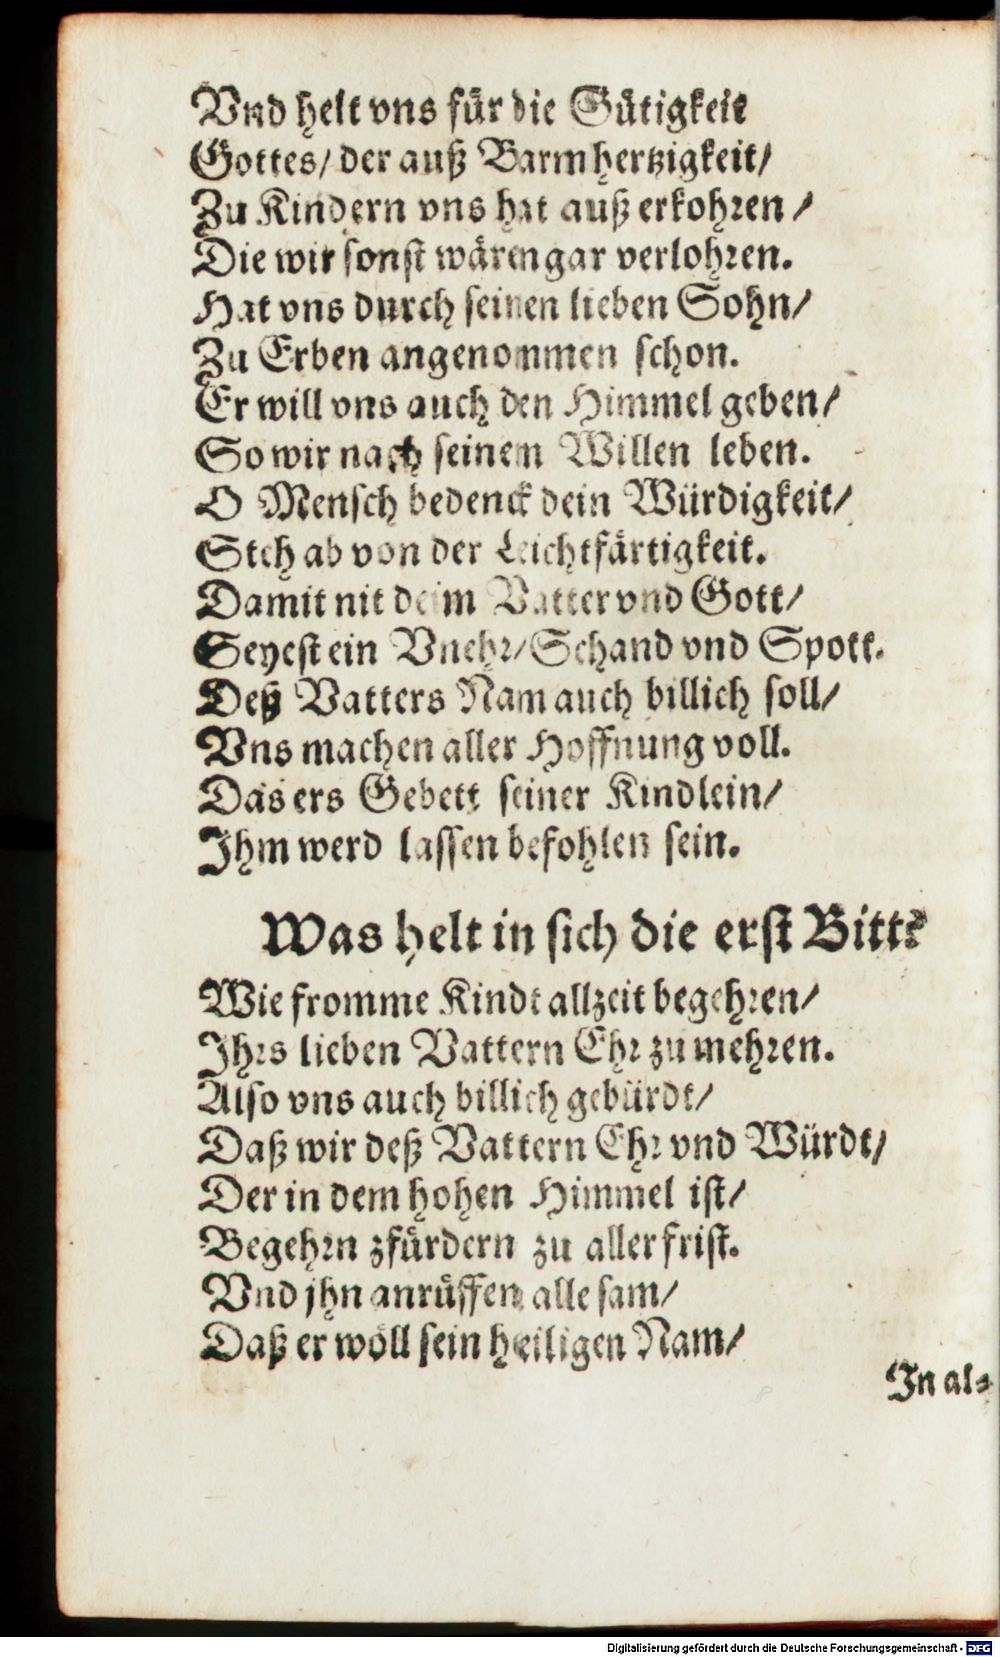 Vnd helt vns für die Gütigkeit
Gottes/ der auß Barmhertzigkeit/
Zu Kindern vns hat außerkohren/
Die wir sonst wären gar verlohren.
Hat vns durch seinen lieben Sohn/
Zu Erben angenommen schon.
Er will vns auch den Himmel geben/
So wir nach seinem Willen leben.
O Mensch bedenck dein Würdigkeit/
Steh ab von der Leichtfärtigkeit.
Damit nit deim Vatter vnd Gott/
Seyest ein Vnehr/ Schand vnd Spott.
Deß Vatters Nam auch billich soll/
Vns machen aller Hoffnung voll.
Das ers Gebett seiner Kindlein/
Ihm werd lassen befohlen sein.
Was helt in sich die erst Bitt?
Wie fromme Kindt allzeit begehren/
Ihrs lieben Vattern Ehr zu mehren.
Also vns auch billich gebürdt/
Daß wir deß Vattern Ehr vnd Würdt/
Der in dem hohen Himmel ist/
Begehrn zfürdern zu aller frist.
Vnd jhn anrüffen alle sam/
Daß er wöll sein heiligen Nam/
In al-
Digitalisierung gefördert durch die Deutsche Forschungsgemeinschaft - DFG